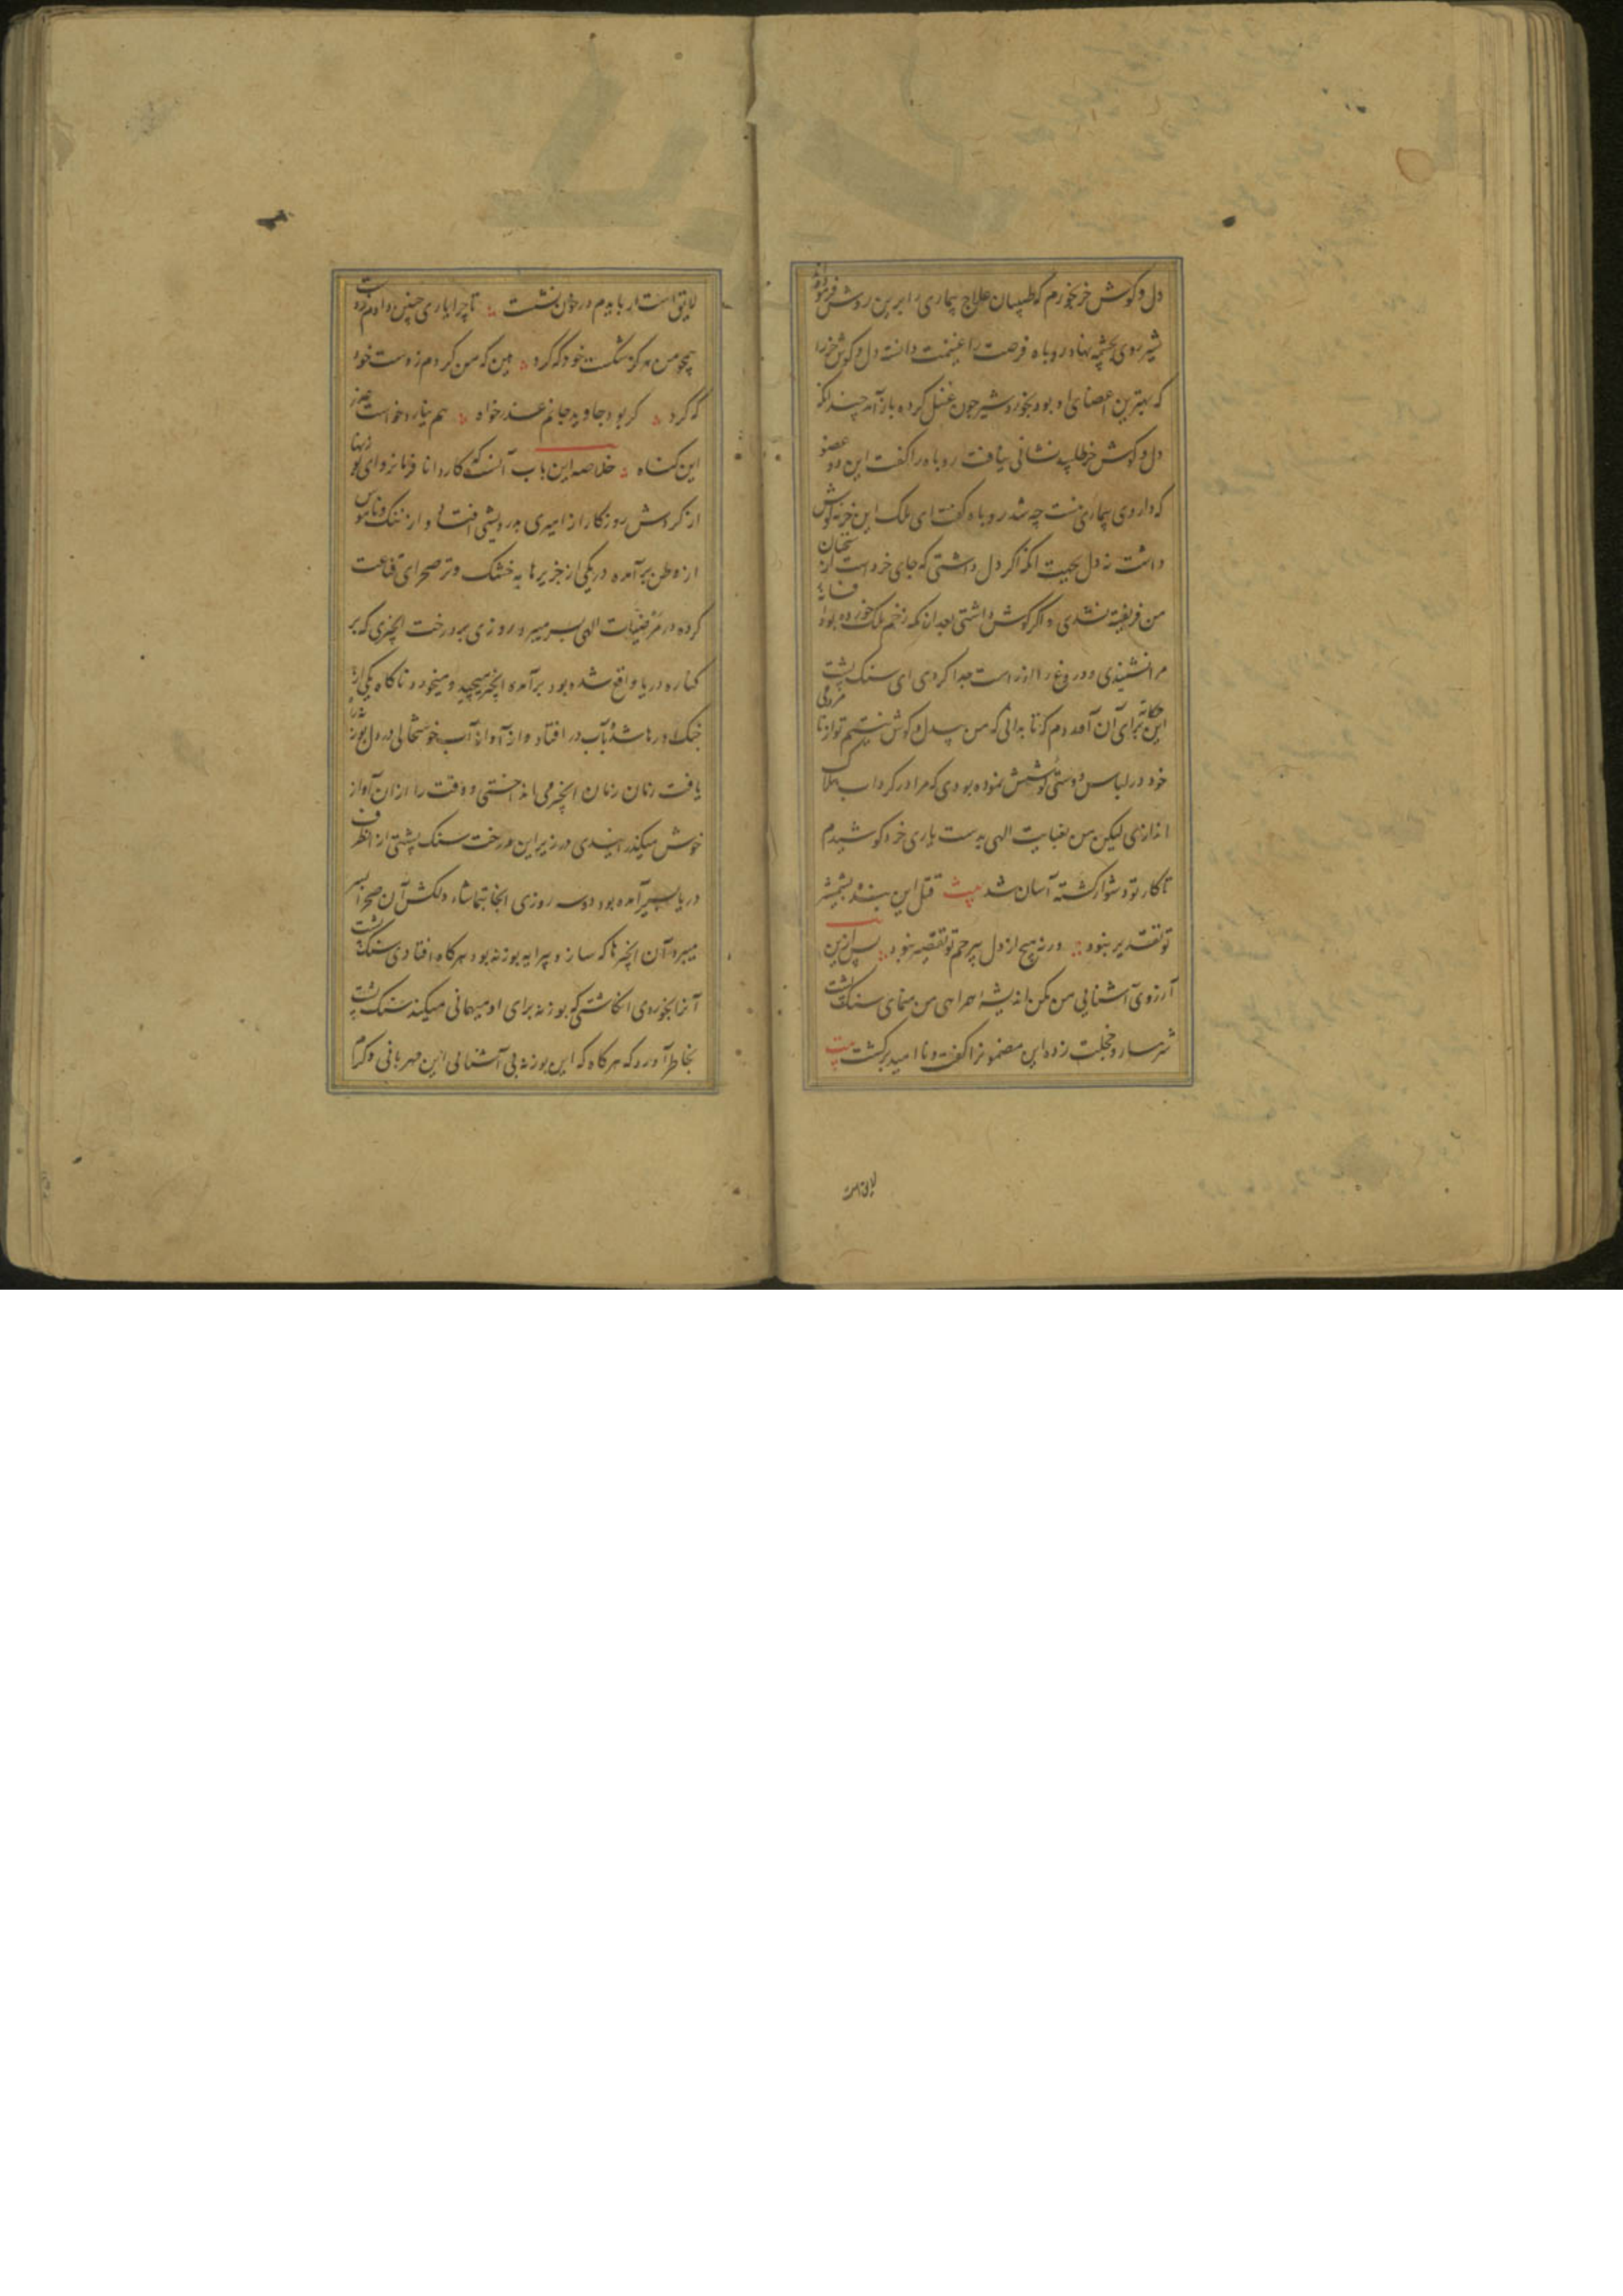 دل و گوش خر بخورم که طبیبان علاج بیماری را برین روش فرموده‌اند
شیر روی بچشمه نهاد روباه فرصت را غنیمت دانسته دل و گوش خر را
که بهترین اعضای او بود بخورد شیر چون غسل کرده باز آمد چندانکه
دل و گوش خر طلبید نشانی نیافت روباه را گفت این دو عضو
که داروی بیماری منست چه شد روباه گفت ای ملک این خر نه گوش
داشت نه دل بجهت آنکه اگر دل داشتی که جای خرد است از سخنان
من فریفته نشدی و اگر گوش داشتی بعد از آنکه زخم ملک خورده بود افسانه
مرا نشنیدی و دروغ را از راست جدا کردی ای سنگ پشت
این حکایه برای آن آوردم که تا بدانی که من بیدل و گوش نیستم تو از نامردمی
خود در لباس دوستی کوشش نموده بودی که مرا در گرداب هلاک
اندازی لیکن من بعنایت الهی بدست یاری خرد کوشیدم
تا کار تو دشوار گشته آسان شد بیت قتل این بنده بشمشیر
تو تقدیر نبود ورنه هیچ از دل بیرحم تو تقصیر نبود پس ازین
آرزوی آشنایی من مکن اندیشه همراهی من منمای سنگ پشت
شرمسار و خجلت زده این مضمون را گفت و نا امید برگشت بیت
لایق است
لایق است ار بایدم در خون نشست تا چرا یاری چنین دادم ز دست
همچو من هرگز شکست خود که کرد این که من کردم ز دست خود
که کرد گر بود جاوید جانم عذر خواه هم نیارد خواست عذر
این گناه خلاصه این باب آنست که کاردانا فرمانروای بوزنها
از گردش روزگار از امیری بدرویشی افتاد و از ننگ و ناموس
از وطن برآمده در یکی از جزیرها به خشک و تر صحرای قناعت
کرده در مرضیات الهی بسر میبرد روزی بر درخت انجیری که بر
کناره دریا واقع شده بود برآمده انجیر میچید و میخورد ناگاه یکی از
چنگ او رها شده بآب در افتاد و از آواز آب خوشحالی در دل بوزنه راه
یافت زمان زمان انجیر می انداختی و وقت را از آن آواز
خوش میگذرانیدی در زیر این درخت سنگ پشتی از آنطرف
دریا بسیر آمده بود دو سه روزی آنجا بتماشاء دلکش آن صحرا بسر
میبرد آن انجیرها که ساز و پیرایه بوزنه بود هرگاه افتادی سنگ پشت
آنرا بخوردی انگاشتی که بوزنه برای او میهمانی میکند سنگ پشت
بخاطر آورد که هرگاه که این بوزنه بی آشنائی این مهربانی و کرم